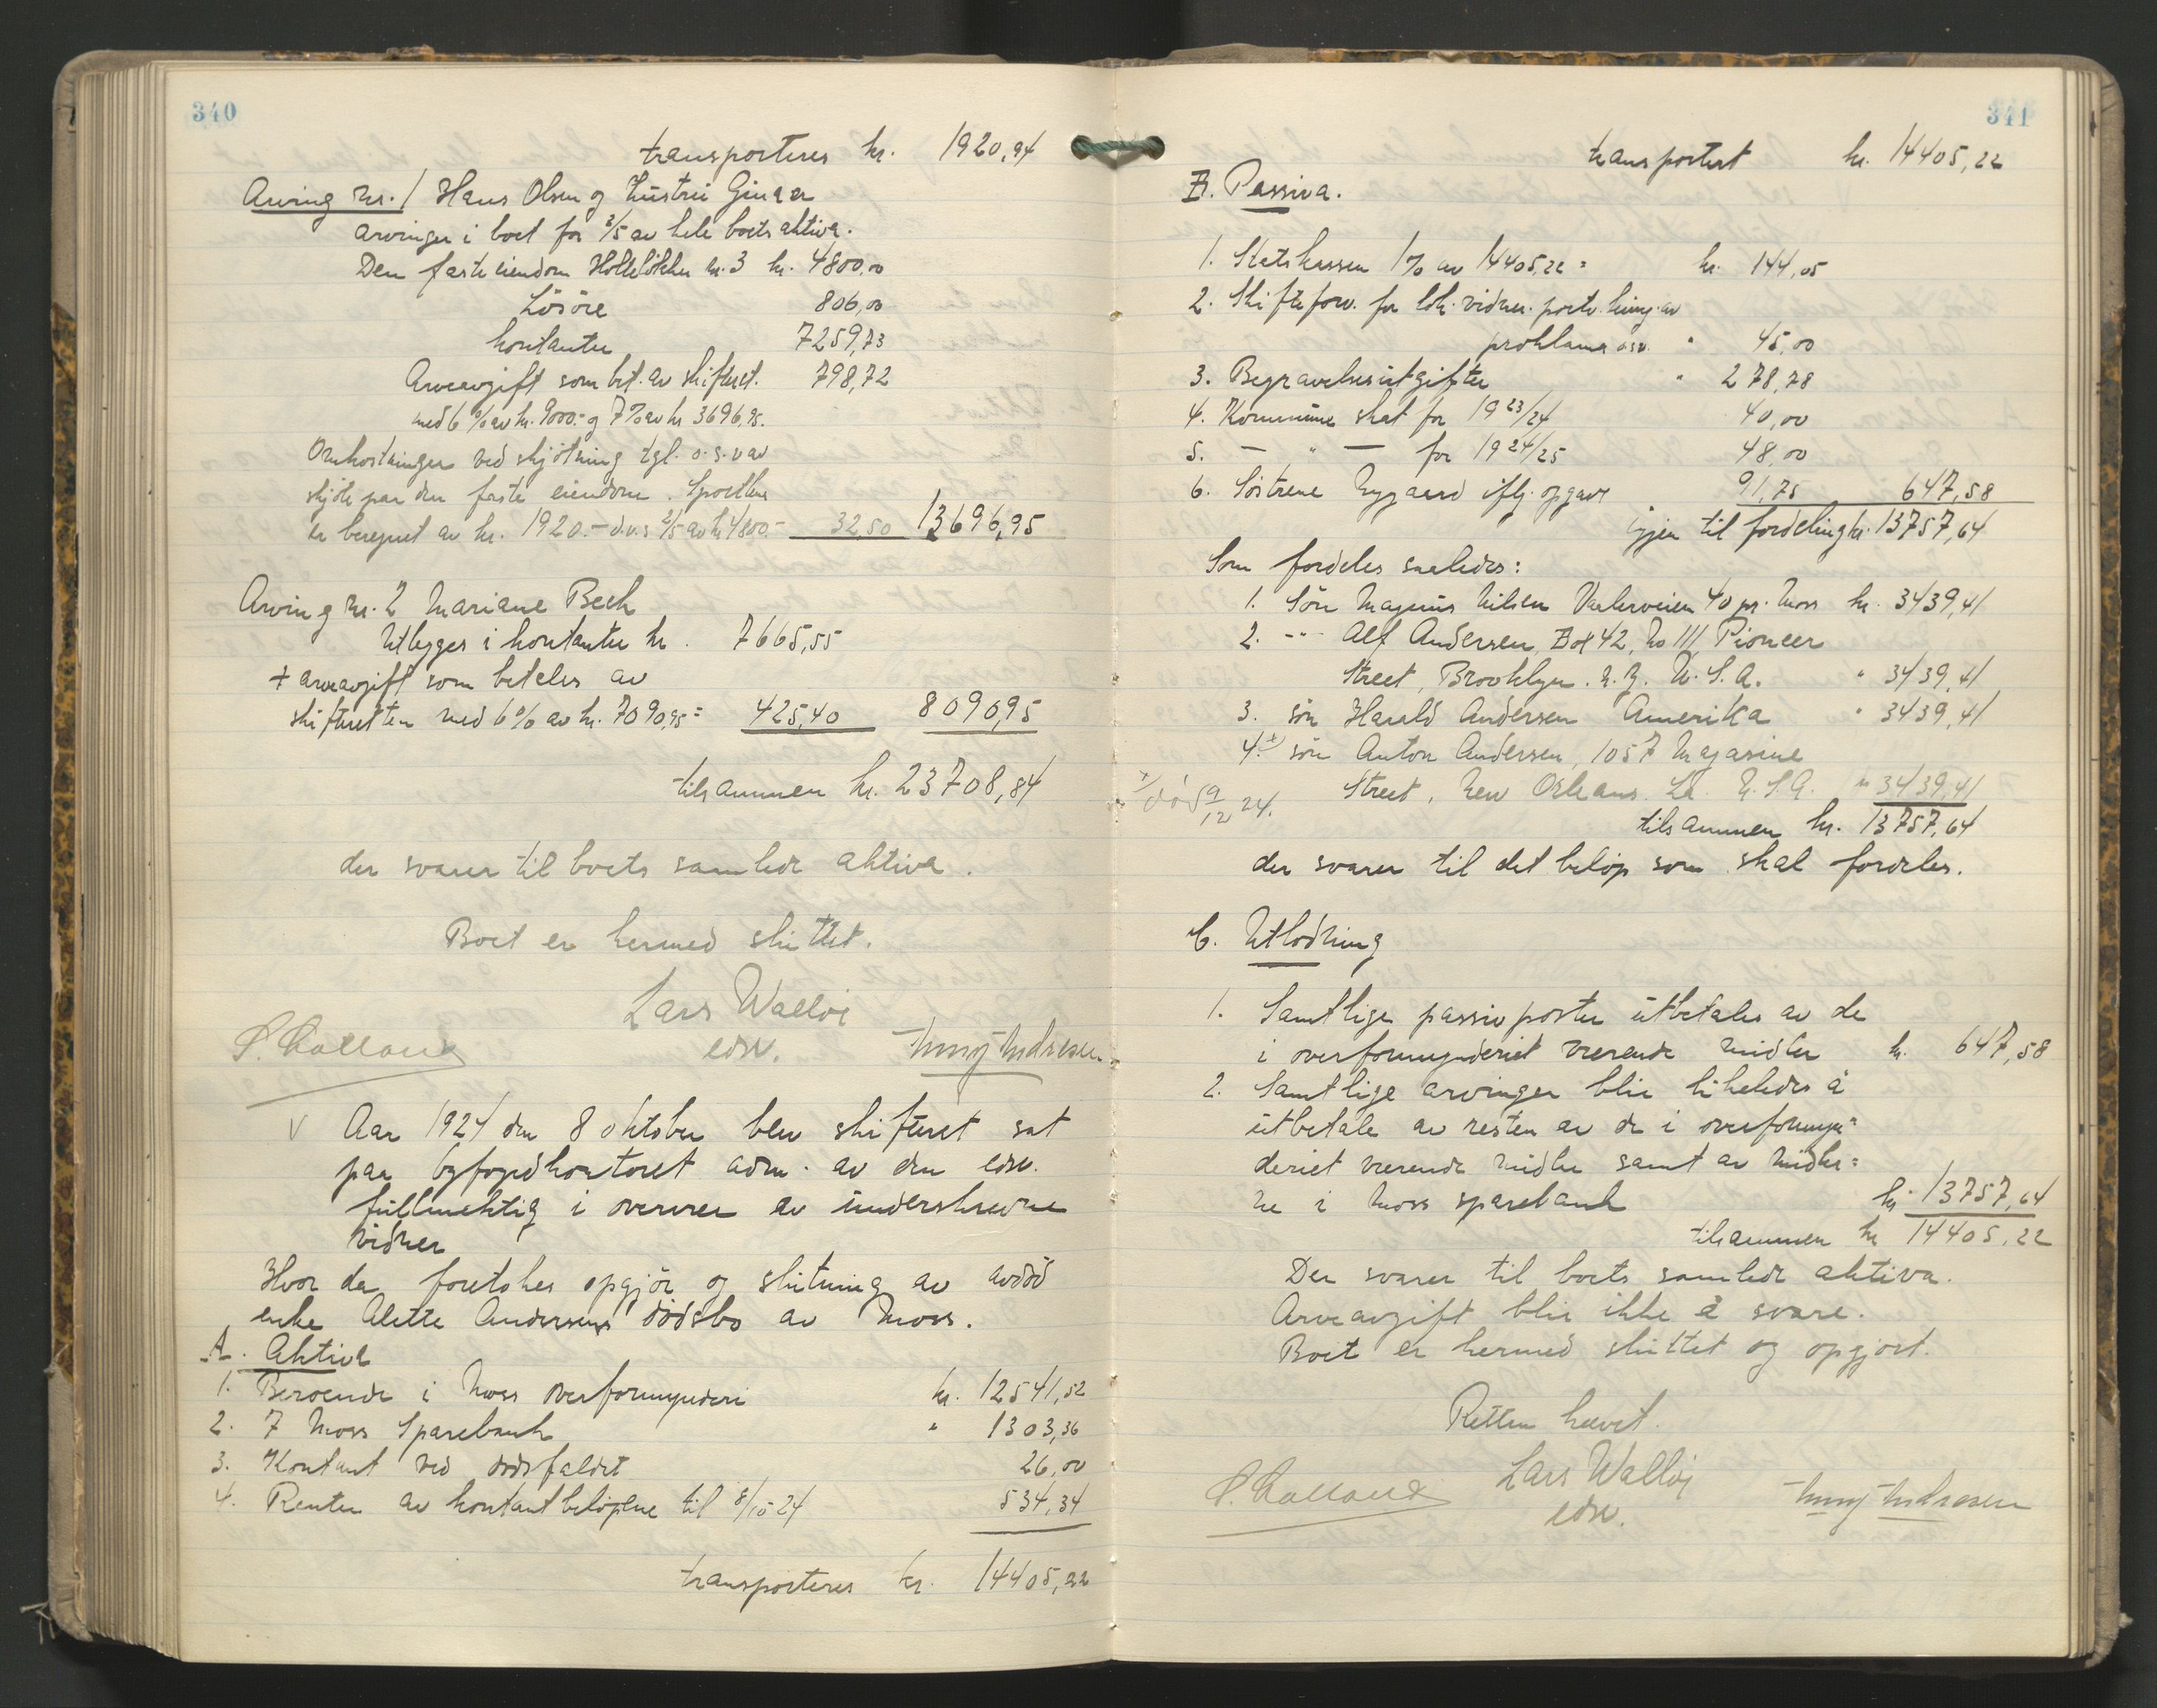 340
transporteres kr. 1920,94
Arving nr. 1 Hans Olsen og hustru Gina er
arvinger i boet for 3/5 av hele boets aktiva.
Den faste eiendom Holleløkken nr. 3 kr. 4800,00
Løsøre 806,00
kontanter 7259,73
Arveavgift som bet. av skifteret. 798,72
med 6 % av kr. 9000.- og 7 % av kr 3696,95.
Omkostninger ved skjøtning tgl. o.s.v av
skjøte paa den faste eiendom. Sportlene
er beregnet av kr. 1920.- d.v.s 2/5 av kr 4800.- 32,50 13696,95
Arving nr. 2 Mariane Bech
Utlegges i kontanter kr. 7665,55
+ arveavgift som betales av
skifteretten med 6 % av kr. 7090,95 = 425,40 8090,95
tilsammen kr. 23708,84
der svarer til boets samlede aktiva.
Boet er hermed sluttet.
Lars Walløi
edsv.
Aar 1924 den 8 oktober blev skifteret sat
paa byfogedkontoret adm. av den edsv.
fullmektig i overvær av underskrevne
vidner
Hvor da foretokes opgjør og slutning av avdød
enke Alette Andersens dødsbo av Moss.
A. Aktiva
1. Beroende i Moss overformynderi kr. 12541,52
2. I Moss Sparebank " 1303,36
3. Kontant ved dødsfaldet 26,00
4. Renter av kontantbeløpene til 8/10-24 534,34
transporteres kr. 14405,22
341
transportert kr. 14405,22
B. Passiva.
1. Statskassen 1 % av 14405,22 = kr. 144,05
2. Skifteforv. for lok. vidner. porto. av
proklama osv. " 45,00
3. Begravelsesutgifter " 278,78
4. Kommune skat for 1923/24 40,00
5. — " — for 1924/25 48,00
6. Søstrene Nygaard iflg. opgave 91,75 647,58
igjen til fordeling kr. 13757,64
Som fordeles saaledes:
1. Søn Magnus Nilsen Vaalerveien 40 pr. Moss kr. 3439,41
2. -"- Alf Andersen, Box 42, No 111, Pioneer
Street, Brooklyn. N.Y. U.S.A. " 3439,41
3. søn Harald Andersen Amerika " 3439,41
4. x) søn Anton Andersen, 1057 Magasine
x) død 9/12 24. Street, New Orleans. La U.S.A. " 3439,41
tilsammen kr. 13757,64
der svarer til det beløp som skal fordeles.
C. Utlodning
1. Samtlige passivposter utbetales av de
i overformynderiet værende midler kr. 647,58
2. Samtlige arvinger blir likeledes å
utbetale av resten av de i overformyn=
deriet værende midler samt av midler=
ne i Moss sparebank kr. 13757,64
tilsammen kr 14405,22
Der svarer til boets samlede aktiva.
Arveavgift blir ikke å svare.
Boet er hermed sluttet og opgjort.
Retten hævet.
Lars Walløi
edsv.